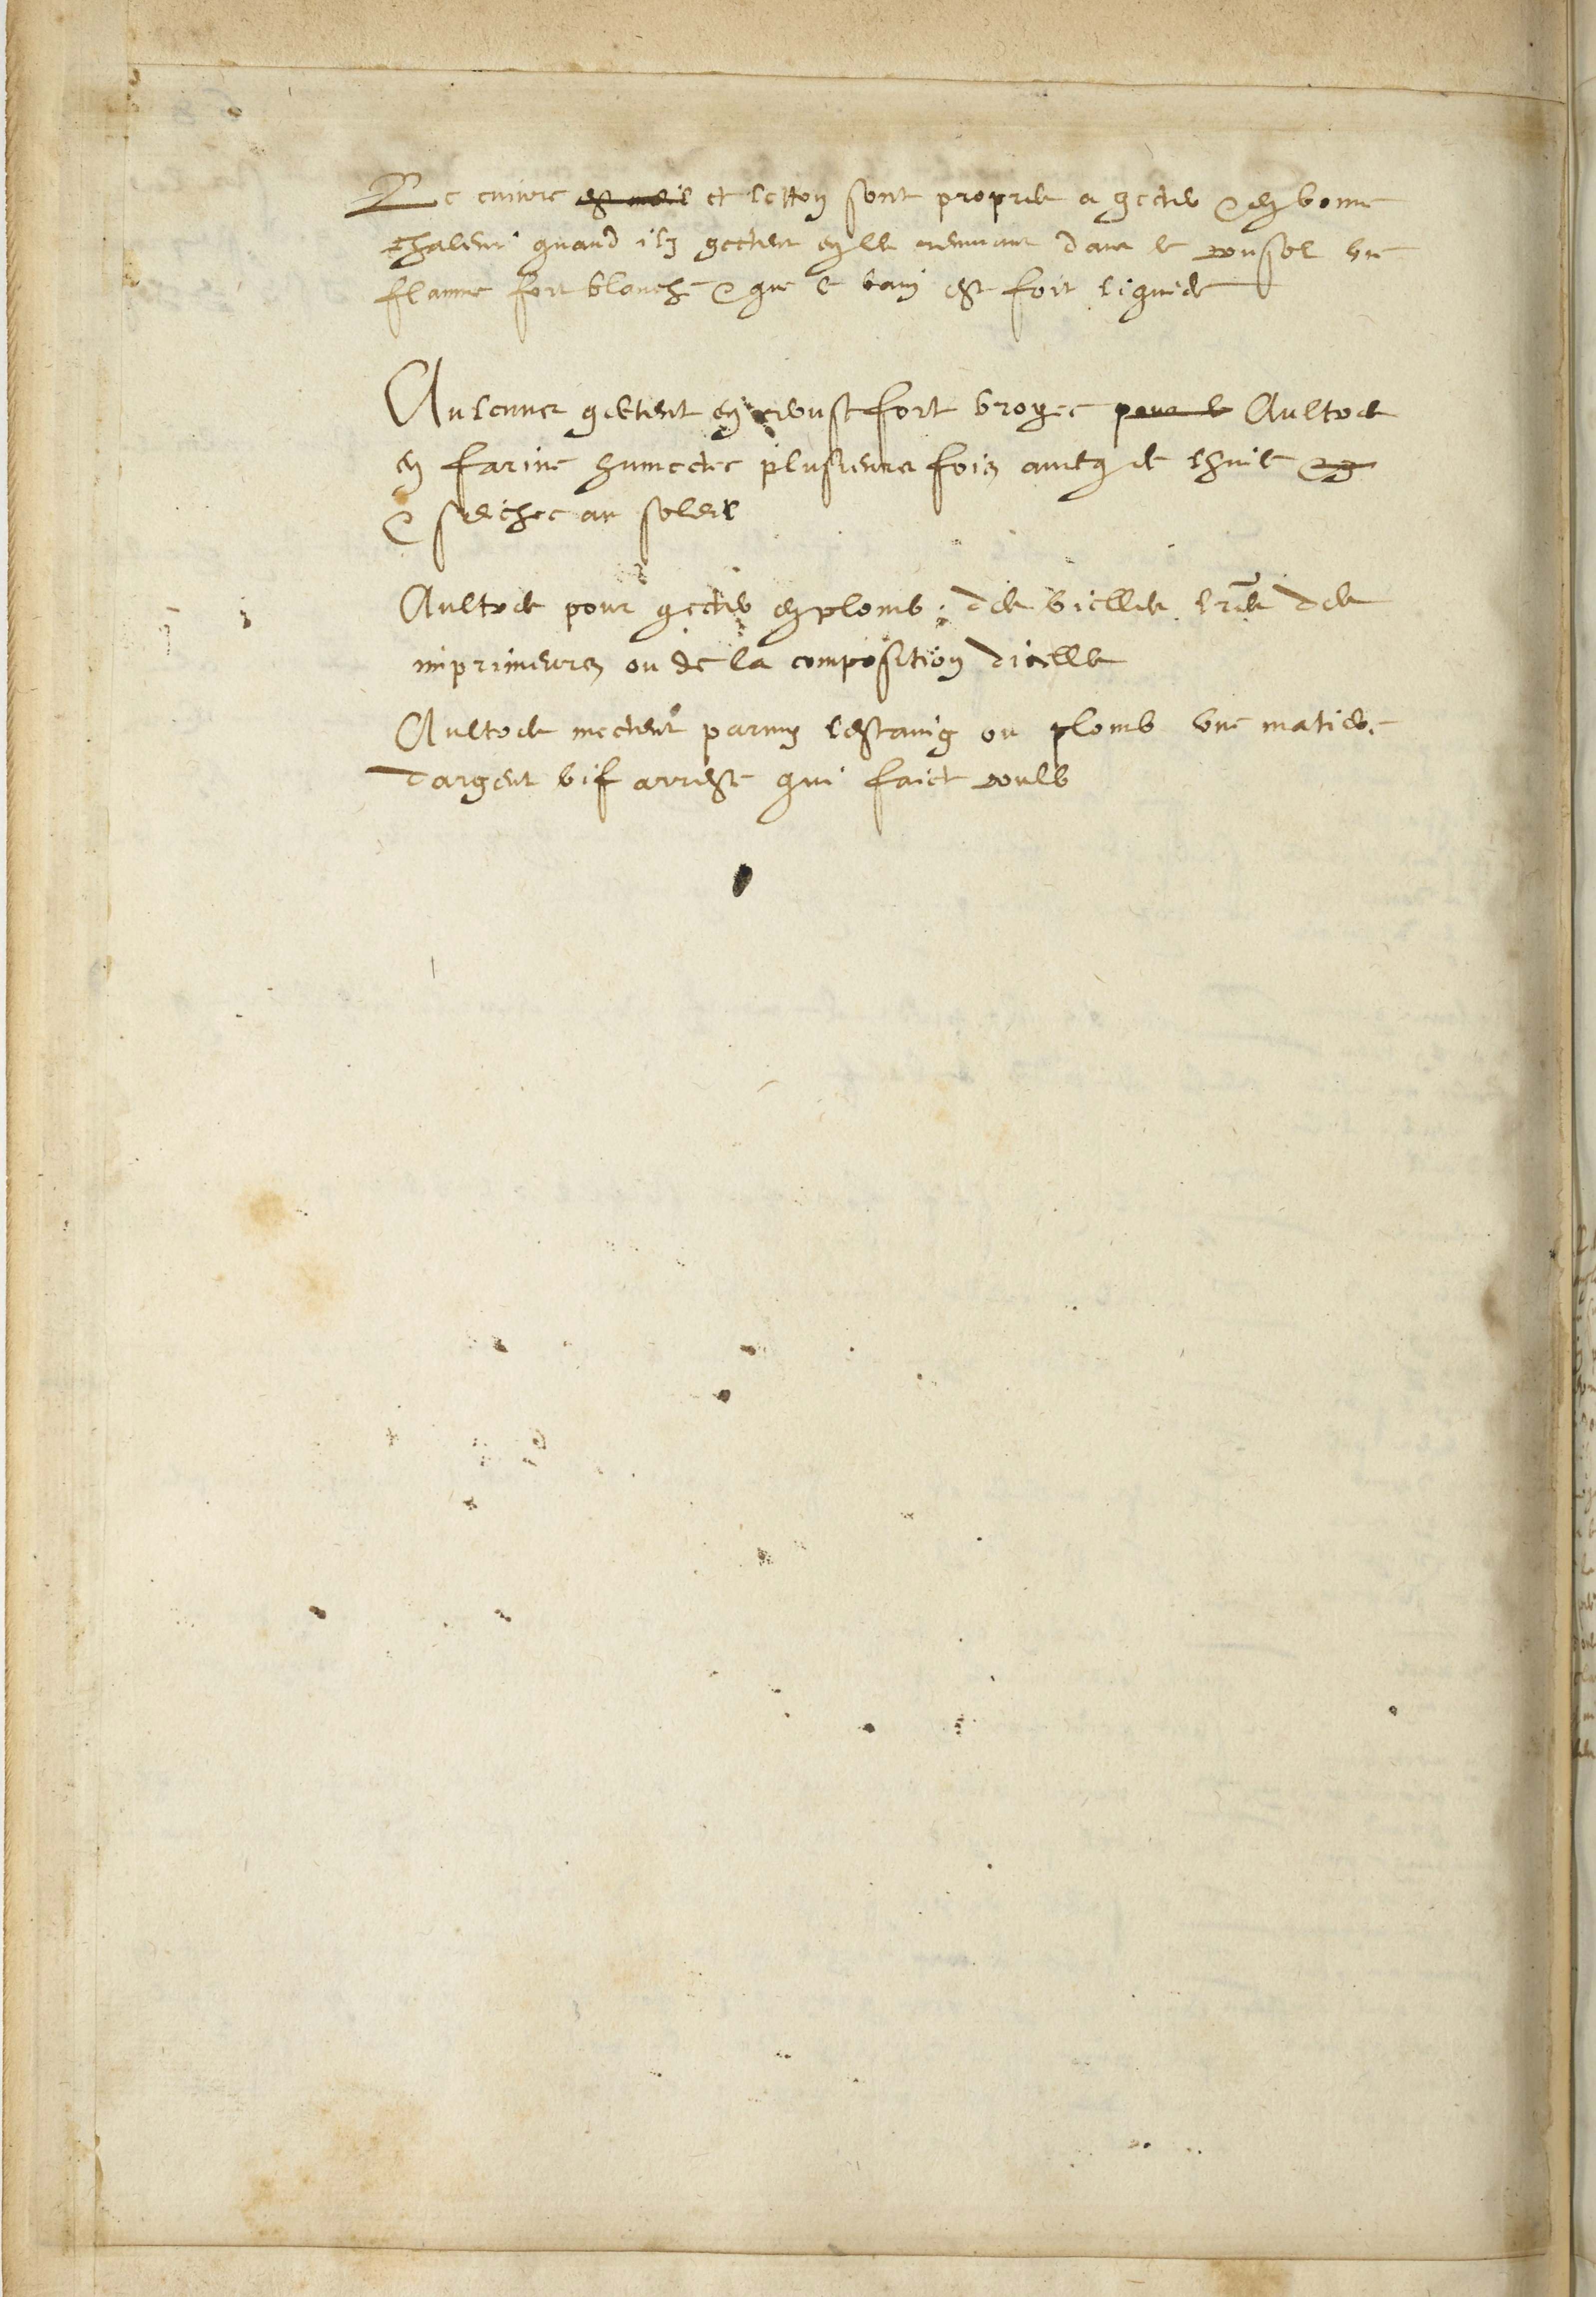 Le cuivre est meil et letton sont propres a gecter & en bonne
chaleur quand ilz gectent en les remuant dans le creuset une
flamme fort blanche & que le baing est fort liquide
Aulcuns gectent en crouste fort broyee pour le Aultres
en farine humectee plusieurs fois avecq de lhuile &
& seichee au soleil
Aultres pour gecter en plomb des vielles lres des
imprimeurs ou de la composition dicelles
Aultres mectent parmy lestaing ou plomb une matiere
dargent vif arreste qui faict couler